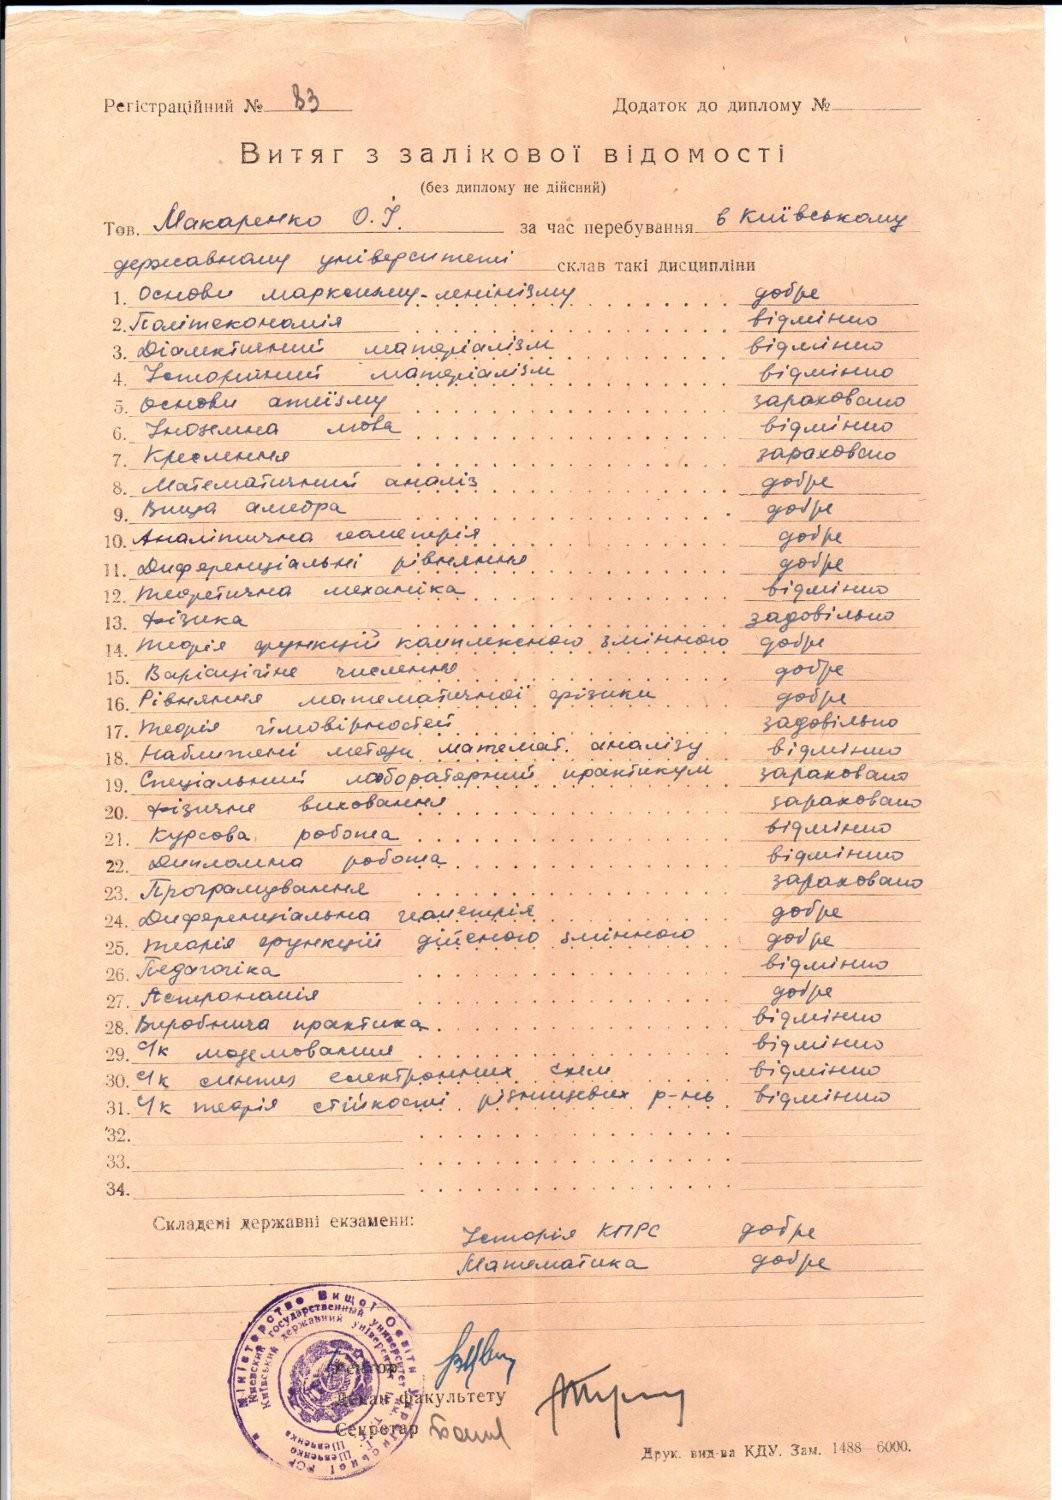 Регістраційний № 83 Додаток до диплому №
Витяг з залікової відомості
(без диплому не дійсний)
Тов. Макаренко О.І. за час перебування в Київському
державному університеті склав такі дисципліни
1. Основи марксизму-ленінізму добре
2. Політекономія відмінно
3. Діалектичний матеріалізм відмінно
4. Історичний матеріалізм відмінно
5. Основи атеїзму зараховано
6. Іноземна мова відмінно
7. Креслення зараховано
8. Математичний аналіз добре
9. Вища алгебра добре
10. Аналітична геометрія добре
11. Диференціальні рівняння добре
12. Теоретична механіка відмінно
13. Фізика задовільно
14. Теорія функцій комплексного змінного добре
15. Варіаційне числення добре
16. Рівняння математичної фізики добре
17. Теорія ймовірностей задовільно
18. Наближені методи математ. аналізу відмінно
19. Спеціальний лабораторний практикум зараховано
20. Фізичне виховання зараховано
21. Курсова робота відмінно
22. Дипломна робота відмінно
23. Програмування зараховано
24. Диференціальна геометрія добре
25. Теорія функцій дійсного змінного добре
26. Педагогіка відмінно
27. Астрономія добре
28. Виробнича практика відмінно
29. С/к моделювання відмінно
30. С/к синтез електронних схем відмінно
31. С/к теорія стійкості різницевих р-нь відмінно
32.
33.
34.
Складені державні екзамени:
Історія КПРС добре
Математика добре
Міністерство Вищої Освіти Української РСР
Киевский государственный университет
Київський державний університет ім. Т. Г. Шевченка
Шевченко
Ректор
Декан факультету
Секретар
Друк. вид-ва КДУ. Зам. 1488—6000.